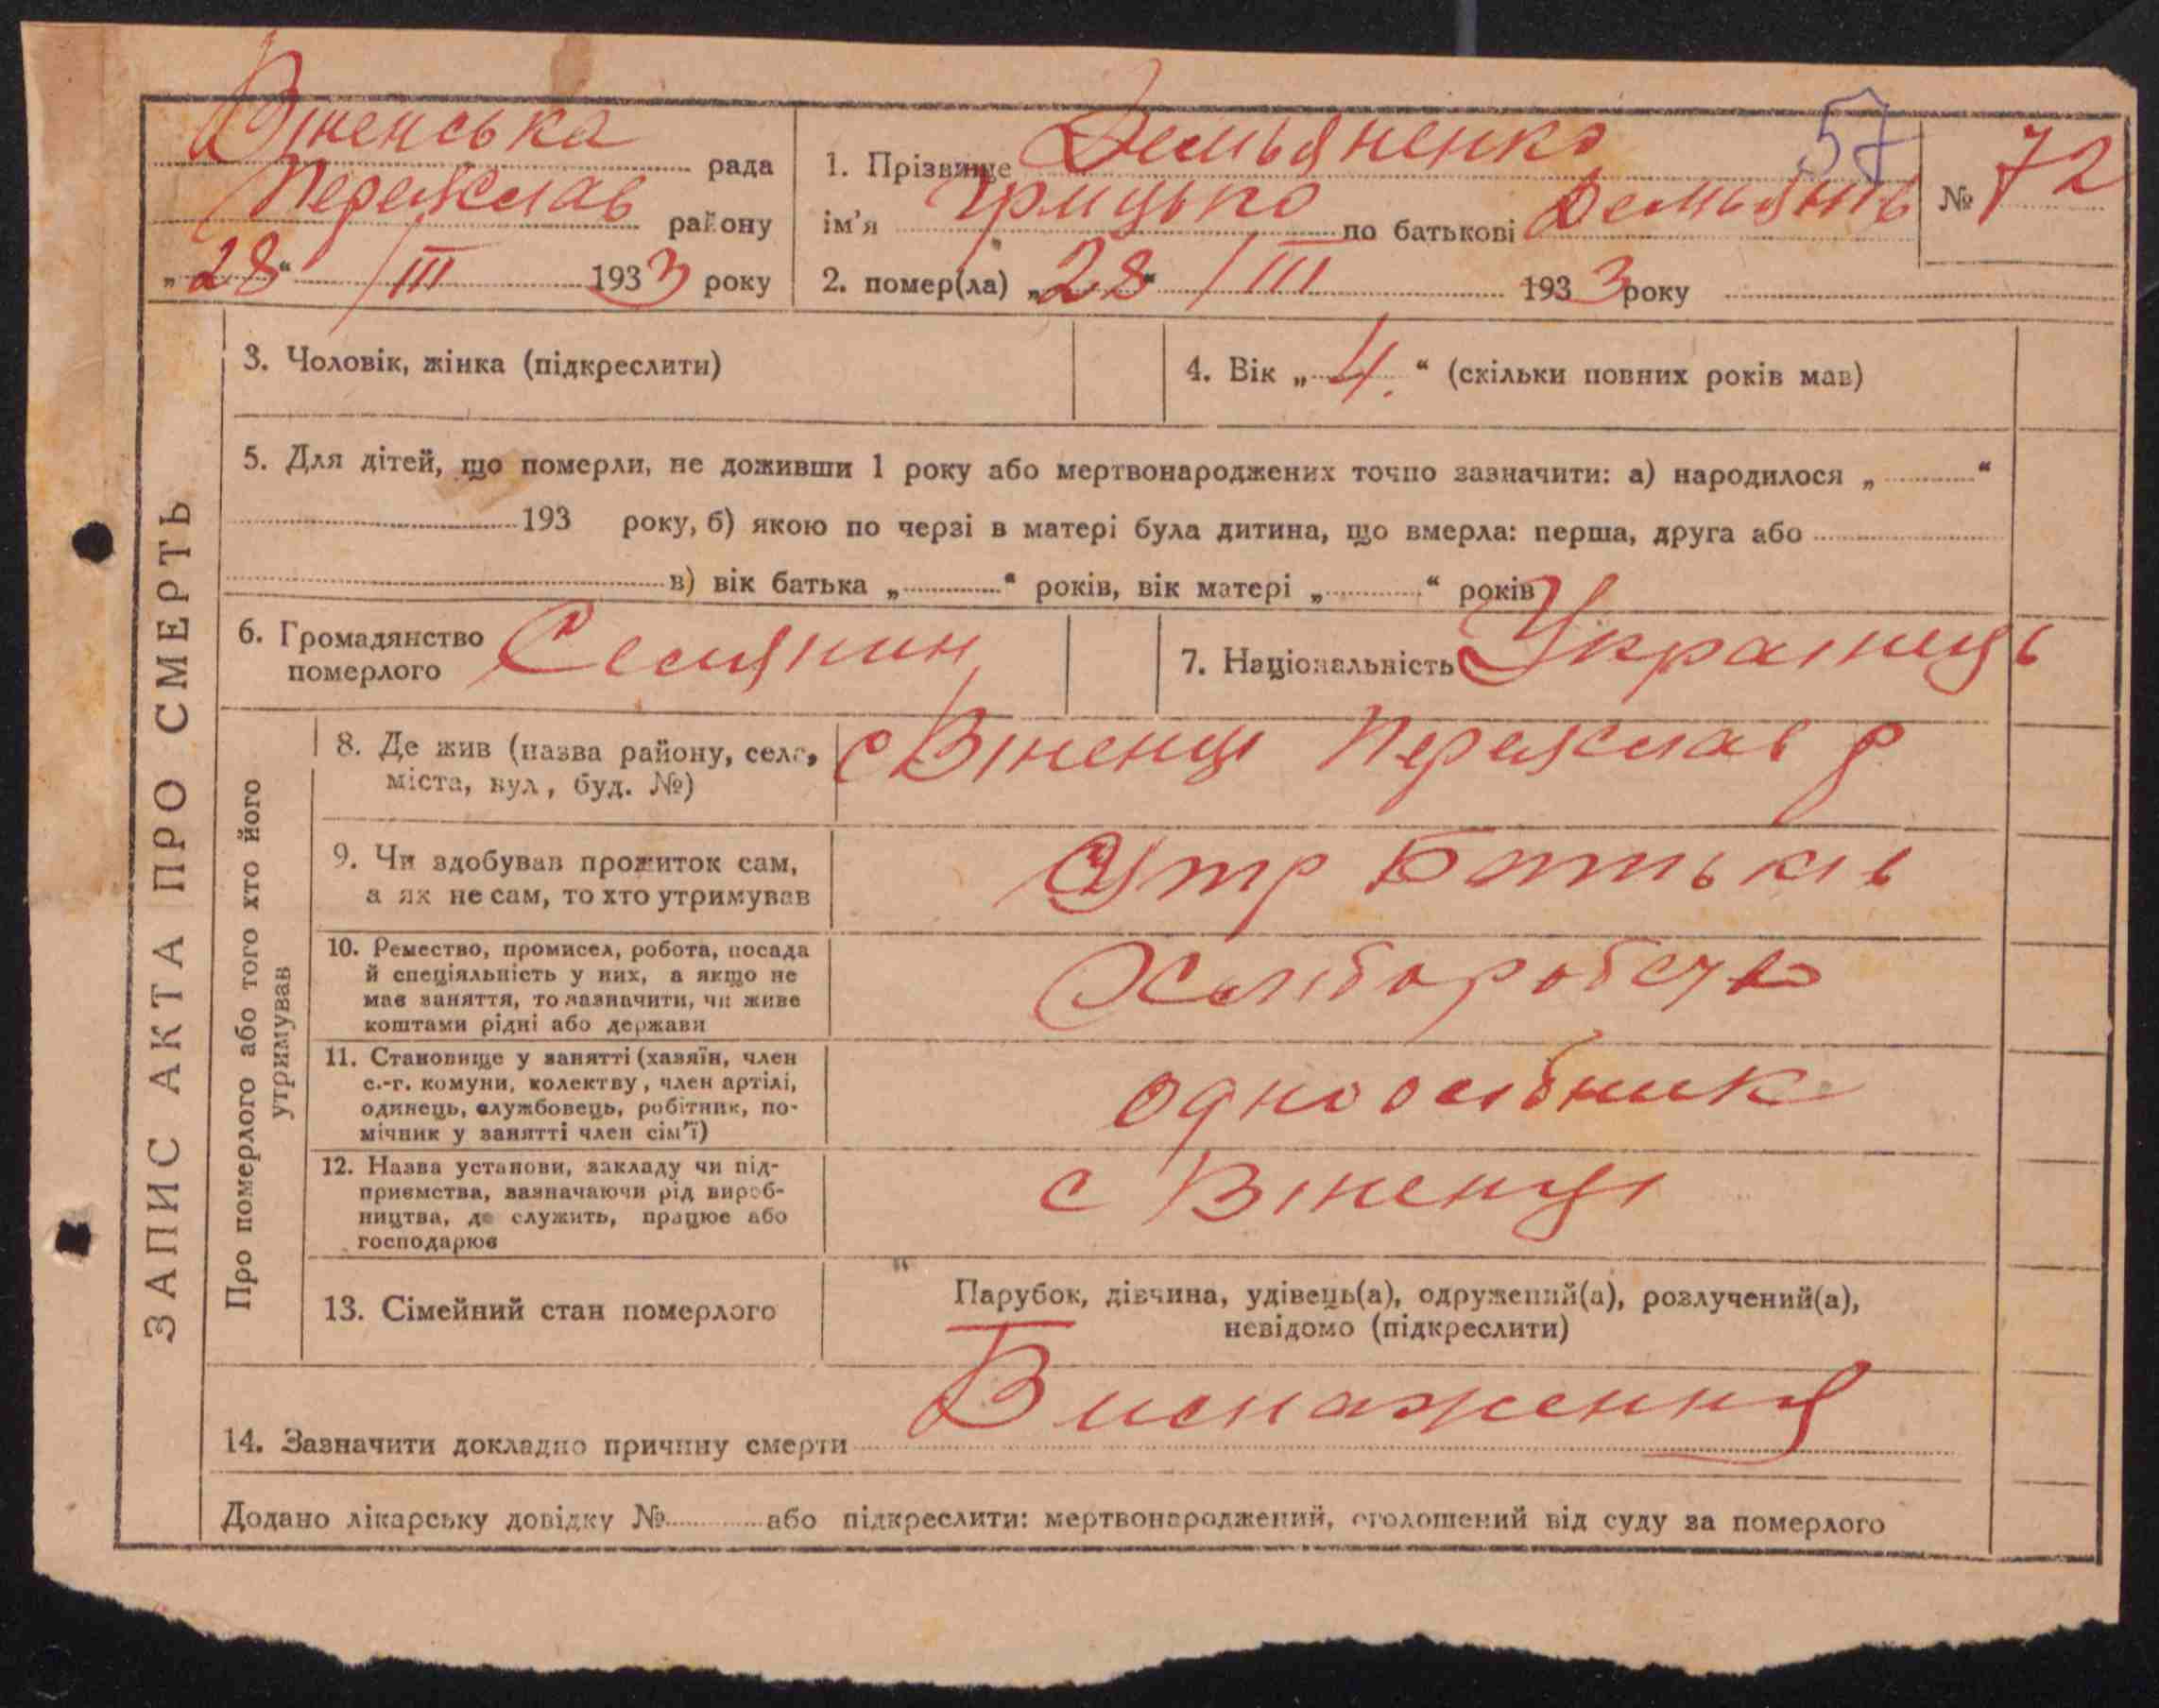 Віненська рада
Переяслав району
„28“ /III 1933 року
1. Прізвище Демьяненко
ім'я Грицько по батькові Демьянів
2. помер(ла) „28“ /III 1933 року
57
№ 72
3. Чоловік, жінка (підкреслити)
4. Вік „4.“ (скільки повних років мав)
5. Для дітей, що померли, не доживши 1 року або мертвонароджених точно зазначити: а) народилося „ “
193 року, б) якою по черзі в матері була дитина, що вмерла: перша, друга або
в) вік батька „ “ років, вік матері „ “ років
6. Громадянство
померлого Селянин
7. Національність Українець
ЗАПИС АКТА ПРО СМЕРТЬ
Про померлого або того хто його
утримував
8. Де жив (назва району, села,
міста, вул, буд. №)
с Віненці Переяслав р
9. Чи здобував прожиток сам,
а як не сам, то хто утримував
Утр Батьків
10. Ремество, промисел, робота, посада
й спеціяльність у них, а якщо не
має заняття, то зазначити, чи живе
коштами рідні або держави
Хліборобство
11. Становище у занятті (хазяїн, член
с.-г. комуни, колектву, член артілі,
одинець, службовець, робітник, по-
мічник у занятті член сім'ї)
одноосібник
12. Назва установи, закладу чи під-
приємства, зазначаючи рід вироб-
ництва, де служить, працює або
господарює
с Віненці
13. Сімейний стан померлого
Парубок, дівчина, удівець(а), одружений(а), розлучений(а),
невідомо (підкреслити)
14. Зазначити докладно причину смерти Виснаження
Додано лікарську довідку № або підкреслити: мертвонароджений, оголошений від суду за померлого